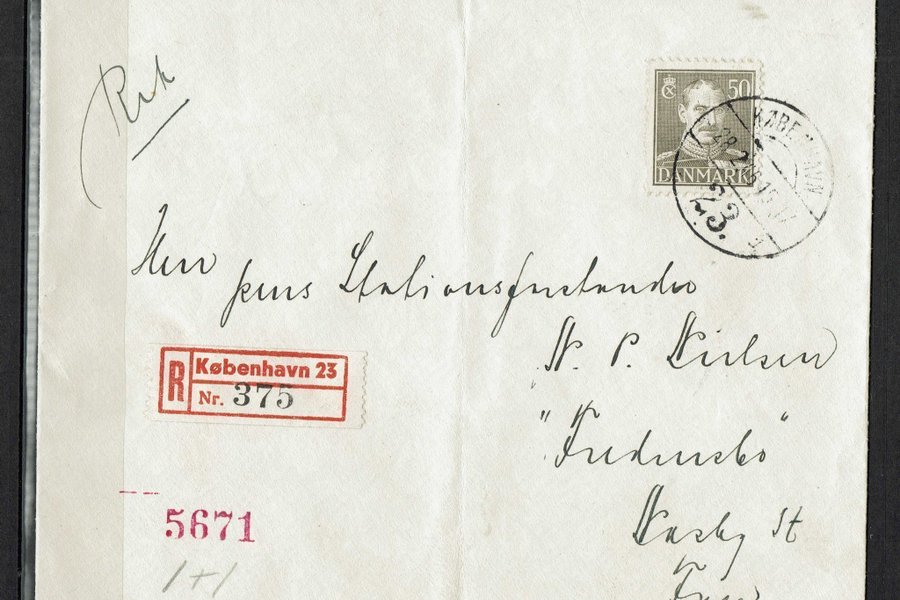 Rek
50
DANMARK
KØBENHAVN
23.
Herr
pens Stationsforstander
N. P. Nielsen
"Fredensbo"
Næsby St
Fyn
R
København 23
Nr. 375
5671